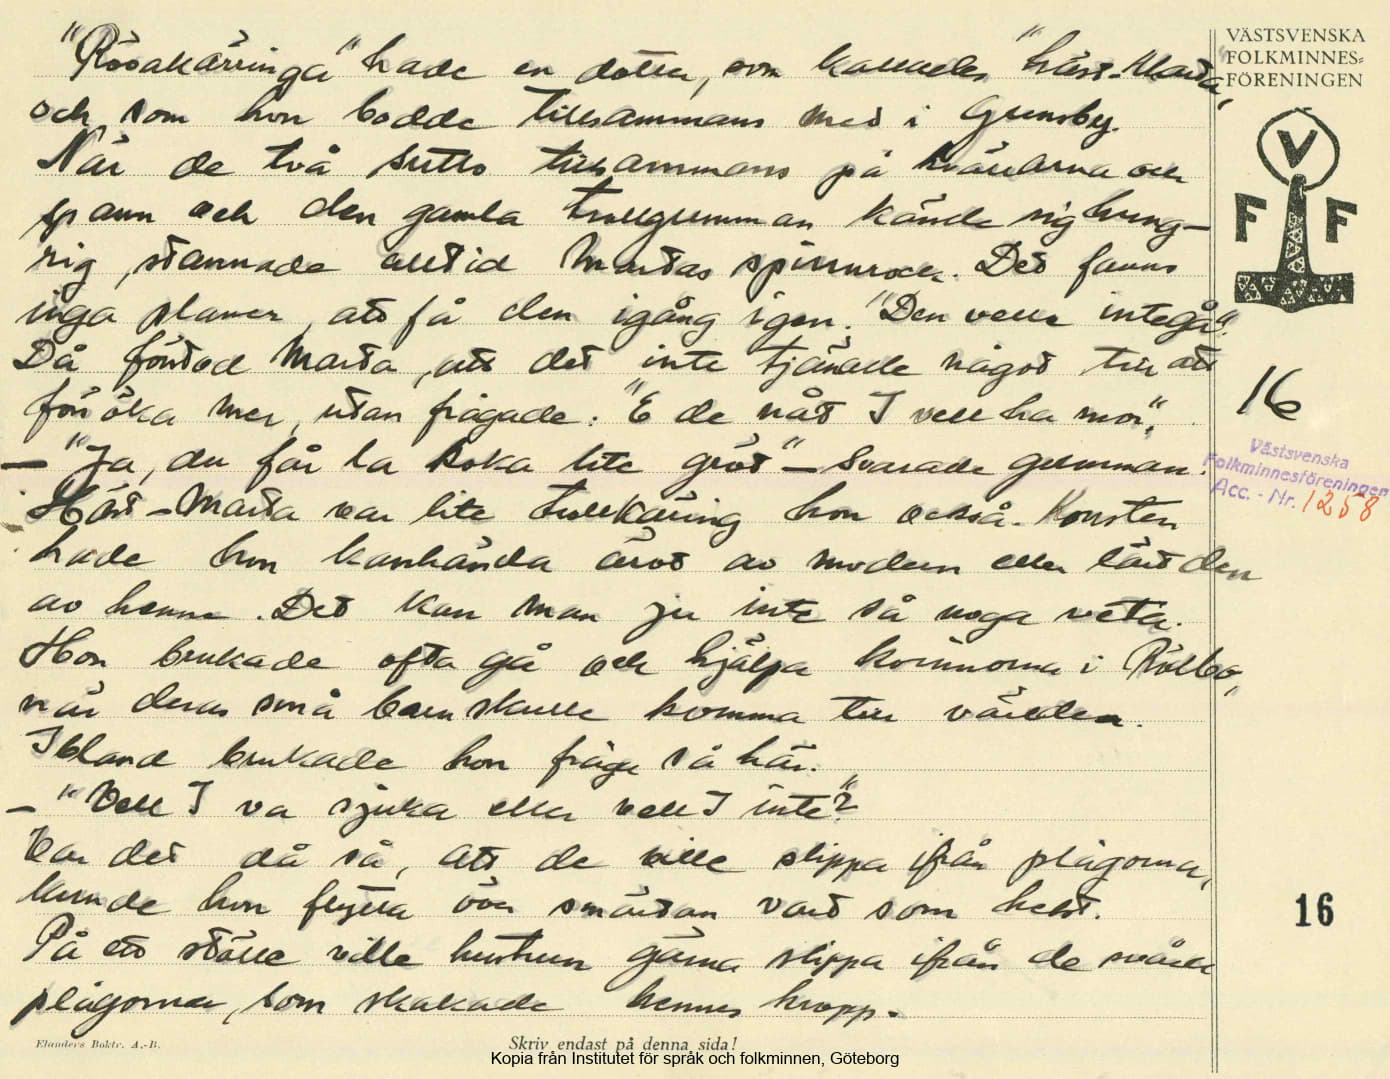 "Rösakärringa" hade en dotter, som kallades "häst-Marta",
och som hon bodde tillsammans med i Grunsby.
När de två sutto tillsammans på kvällarna och
spann och den gamla trollgumman kände sig hung-
rig, stannade alltid Martas spinnrock. Det fanns
inga planer att få den igång igen. "Den velle inte gå".
Då förstod Marta, att det inte tjänade något till att
försöka mer, utan frågade: "E de nåt I vell ha mor".
— "Ja, du får la koka lite gröt" – svarade gumman.
Häst-Marta var lite trollkäring hon också. Konsten
hade hon kanhända ärvt av modern eller lärt den
av henne. Det kan man ju inte så noga veta.
Hon brukade ofta gå och hjälpa kvinnorna i Rölbo,
när deras små barn skulle komma till världen.
Ibland brukade hon fråga så här:
— "Vell I va sjuka eller vell I inte"?
Var det då så, att de ville slippa ifrån plågorna,
kunde hon flytta över smärtan vart som helst.
På ett ställe ville hustrun gärna slippa ifrån de svåra
plågorna, som skakade hennes kropp.
VÄSTSVENSKA
FOLKMINNES=
FÖRENINGEN
V
F F
16
Västsvenska
Folkminnesföreningen
Acc. - Nr. 1258
16
Elanders Boktr. A.-B.
Skriv endast på denna sida!
Kopia från Institutet för språk och folkminnen, Göteborg